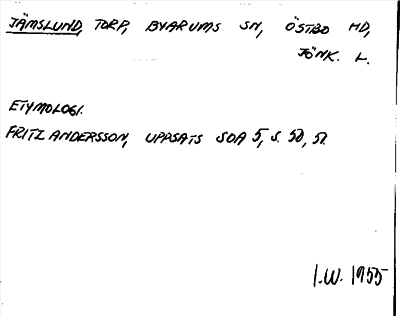 JÄMSLUND, TORP, BYARUMS SN, ÖSTBO HD,
JÖNK. L.
ETYMOLOGI.
FRITZ ANDERSSON, UPPSATS SOA 5, S. 50, 51.
I.W. 1955